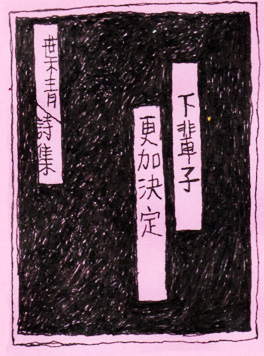 下輩子
更加決定
葉青詩集